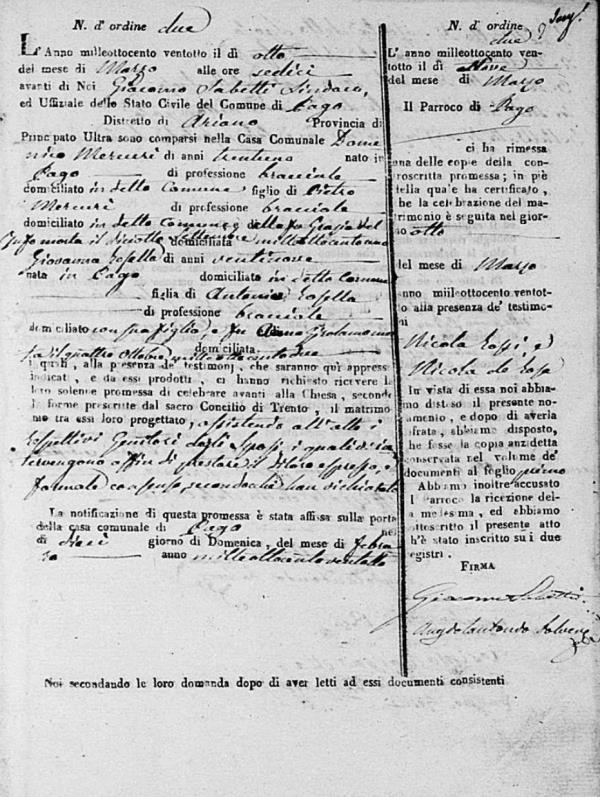 N. d' ordine due
L' Anno milleottocento ventotto il dì otto
del mese di Marzo alle ore sedici
avanti di Noi Giacomo Sabetti Sindaco,
ed Uffiziale dello Stato Civile del Comune di Pago
Distretto di Ariano Provincia di
Principato Ultra sono comparsi nella Casa Comunale Dome
nico Mercuri di anni ventuno nato in
Pago di professione bracciale
domiciliato in detto Comune figlio di Pietro
Mercuri di professione bracciale
domiciliato in detto Comune e della fu Grazia del
morta il diciotto domiciliata milleottocento
Giovanna di anni ventinove
nata in Pago domiciliata in detto Comune
figlia di Antonio
di professione bracciale
domiciliato con sua figlia, e fu Anna Girolama mor
ta il quattro Ottobre milleottocentodue domiciliata
i quali, alla presenza de' testimonj, che saranno quì appresso
indicati, e da essi prodotti, ci hanno richiesto ricevere la
loro solenne promessa di celebrare avanti alla Chiesa, secondo
le forme prescritte dal sacro Concilio di Trento, il matrimo
tra essi loro progettato, assistendo all'atto i
rispettivi Genitori degli Sposi, i quali v' in
tervengono affin di prestare il di loro espresso, e
formale consenso, secondochè han dichiarato
La notificazione di questa promessa è stata affissa sulla porta
della casa comunale di Pago nel
dì dieci giorno di Domenica, del mese di febra
ro anno milleottocento ventotto
Noi secondando le loro domanda dopo di aver letti ad essi documenti consistenti
N. d' ordine
due
L' anno milleottocento ven-
totto il dì Nove
del mese di Marzo
Il Parroco di Pago
ci ha rimessa
una delle copie della con-
troscritta promessa; in piè
della quale ha certificato,
che la celebrazione del ma-
trimonio è seguita nel gior-
no otto
del mese di Marzo
anno milleottocento ventot-
to alla presenza de' testimo-
ni
Nicola e
Nicola de
In vista di essa noi abbia-
mo disteso il presente no-
tamento, e dopo di averla
cifrata, abbiamo disposto,
che fosse la copia anzidetta
conservata nel volume de'
documenti al foglio primo
Abbiamo inoltre accusato
al Parroco la ricezione del-
la medesima, ed abbiamo
sottoscritto il presente atto
ch'è stato inscritto su i due
registri.
FIRMA
Giacomo Sabetti